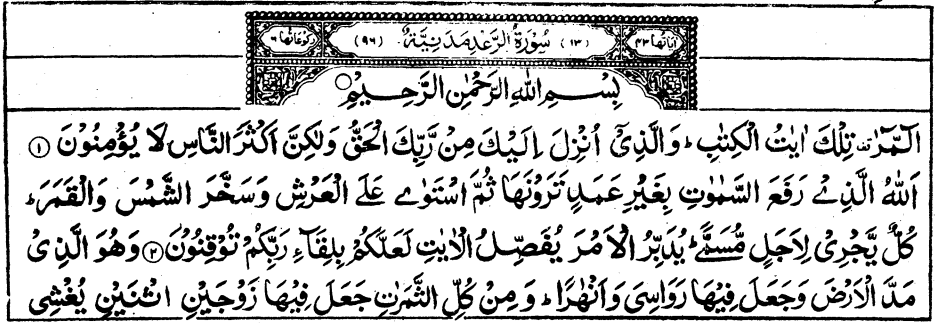 اٰیاتها ٤٣ (١٣) سُوْرَةُ الرَّعْدِ مَدَنِيَّةٌ (٩٦) رکوعاتها ٦
بِسْمِ اللّٰهِ الرَّحْمٰنِ الرَّحِيْمِ
الٓمّٓرٰ تِلْكَ اٰيٰتُ الْكِتٰبِ ؕ وَالَّذِيْٓ اُنْزِلَ اِلَيْكَ مِنْ رَّبِّكَ الْحَقُّ وَلٰكِنَّ اَكْثَرَ النَّاسِ لَا يُؤْمِنُوْنَ ١
اَللّٰهُ الَّذِيْ رَفَعَ السَّمٰوٰتِ بِغَيْرِ عَمَدٍ تَرَوْنَهَا ثُمَّ اسْتَوٰى عَلَى الْعَرْشِ وَسَخَّرَ الشَّمْسَ وَالْقَمَرَ ؕ
كُلٌّ يَّجْرِيْ لِاَجَلٍ مُّسَمًّى ؕ يُدَبِّرُ الْاَمْرَ يُفَصِّلُ الْاٰيٰتِ لَعَلَّكُمْ بِلِقَآءِ رَبِّكُمْ تُوْقِنُوْنَ ٢ وَهُوَ الَّذِيْ
مَدَّ الْاَرْضَ وَجَعَلَ فِيْهَا رَوَاسِيَ وَاَنْهٰرًا ؕ وَمِنْ كُلِّ الثَّمَرٰتِ جَعَلَ فِيْهَا زَوْجَيْنِ اثْنَيْنِ يُغْشِي